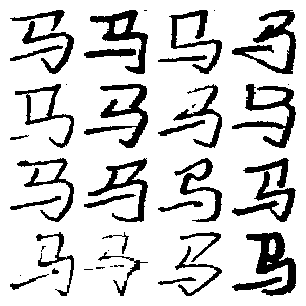 马马马马
马马马马
马马马马
马马马马